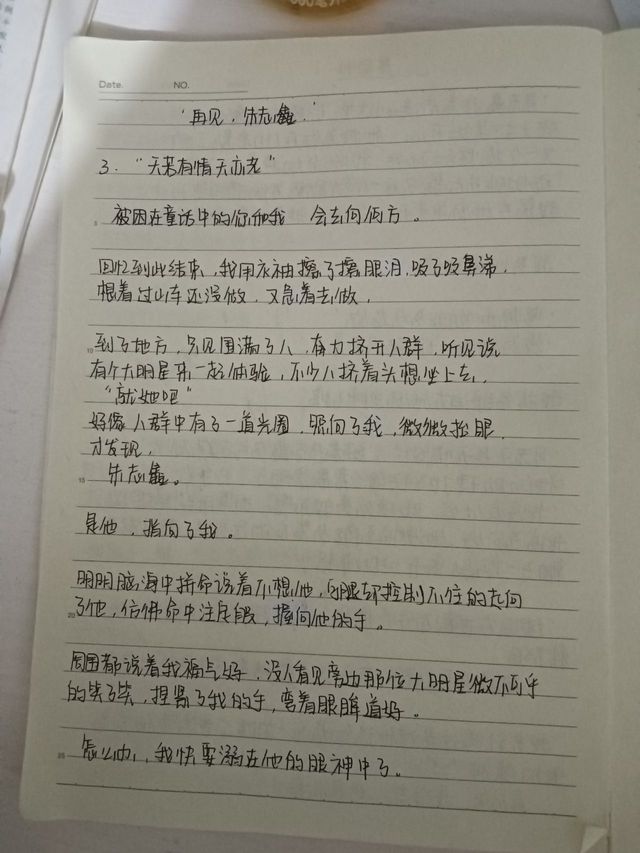 Date.    NO.
'再见，朱志鑫.'
3. "天若有情天亦老"
5 被困在童话中的你和我 会去向何方。
回忆到此结束，我用衣袖擦了擦眼泪，吸了吸鼻涕，
想着过山车还没做，又急着去做，
10 到了地方，只见围满了人，奋力挤开人群，听见说
有个大明星来一起体验，不少人挤着头想坐上去，
"就她吧"
好像人群中有了一道光圈，照向了我，微微抬眼，
才发现，
15 朱志鑫。
是他，指向了我。
明明脑海中拼命说着不想他，但腿却控制不住的走向
20 了他，仿佛命中注定般，握向他的手。
周围都说着我福气好，没人看见旁边那位大明星微不可乎
的笑了笑，捏紧了我的手，弯着眼眸道好。
25 怎么办，我快要溺在他的眼神中了。